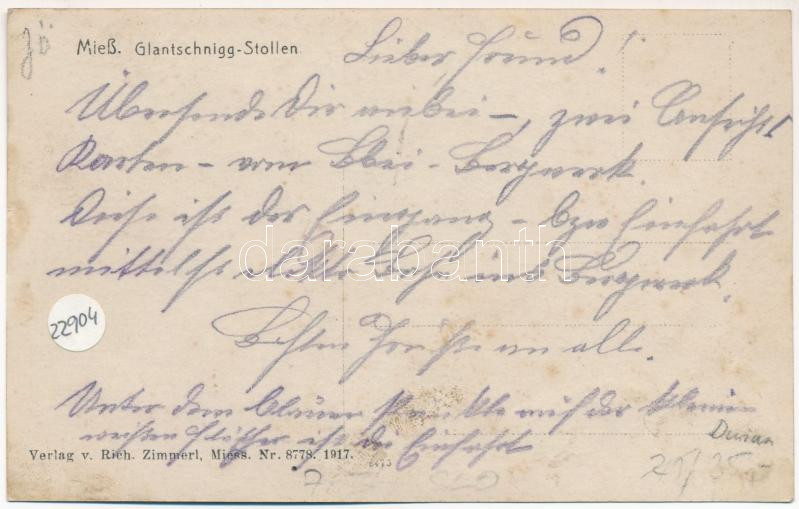 jö
Mieß. Glantschnigg-Stollen
Lieber Freund!
Übersende Dir anbei –, zwei Ansichts
Karten – vom Blei-Bergwerk.
Diese ist der Eingang – bzw Einfahrt
mittelst elektr. Bahn ins Bergwerk.
darabanth
22904
Besten Grüße an alle.
Unter dem blauen Punkte auf der kleinen
weißen ist die Einfahrt
Durian
Verlag v. Rich. Zimmerl, Miess. Nr. 8778. 1917.